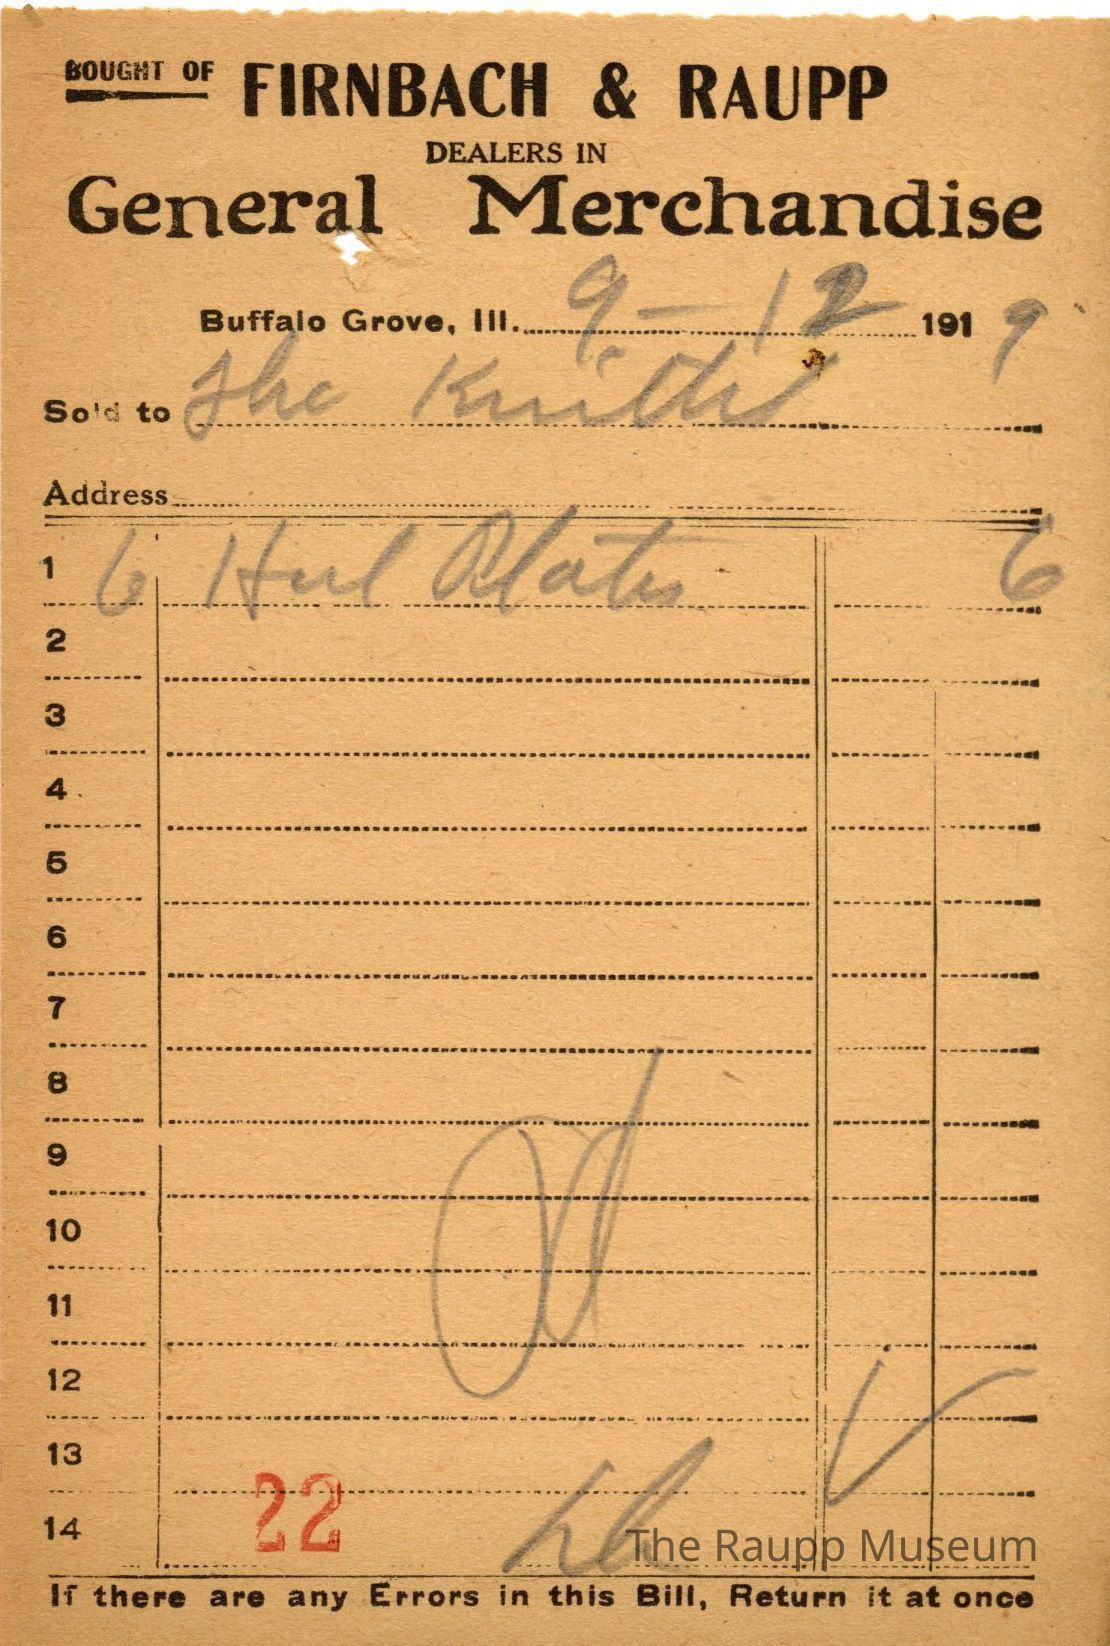 BOUGHT OF FIRNBACH & RAUPP
DEALERS IN
General Merchandise
Buffalo Grove, Ill. 9 - 12 1919
Sold to The
Address
1 6 Heel Plates 6
2
3
4
5
6
7
8
9
10
11
12
13
14 22
The Raupp Museum
If there are any Errors in this Bill, Return it at once